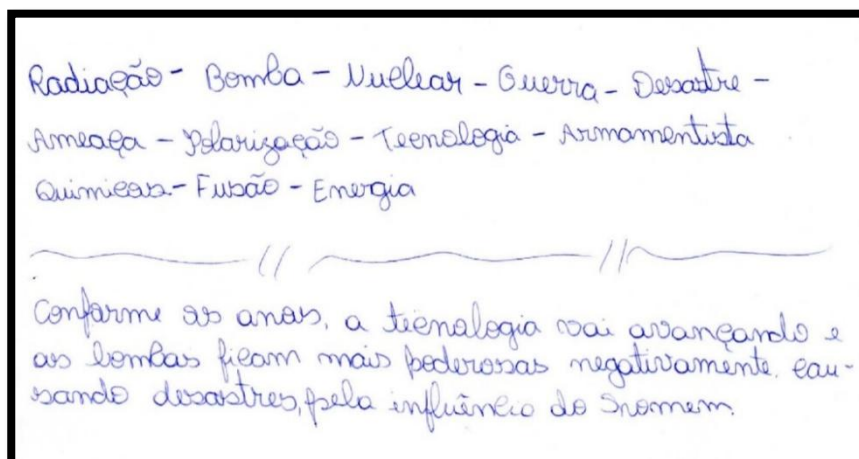 Radiação - Bomba - Nuclear - Guerra - Desastre -
Ameaça - Polarização - Tecnologia - Armamentista
Químicas - Fusão - Energia
Conforme os anos, a tecnologia vai avançando e
as bombas ficam mais poderosas negativamente. cau-
sando desastres, pela influência do homem.